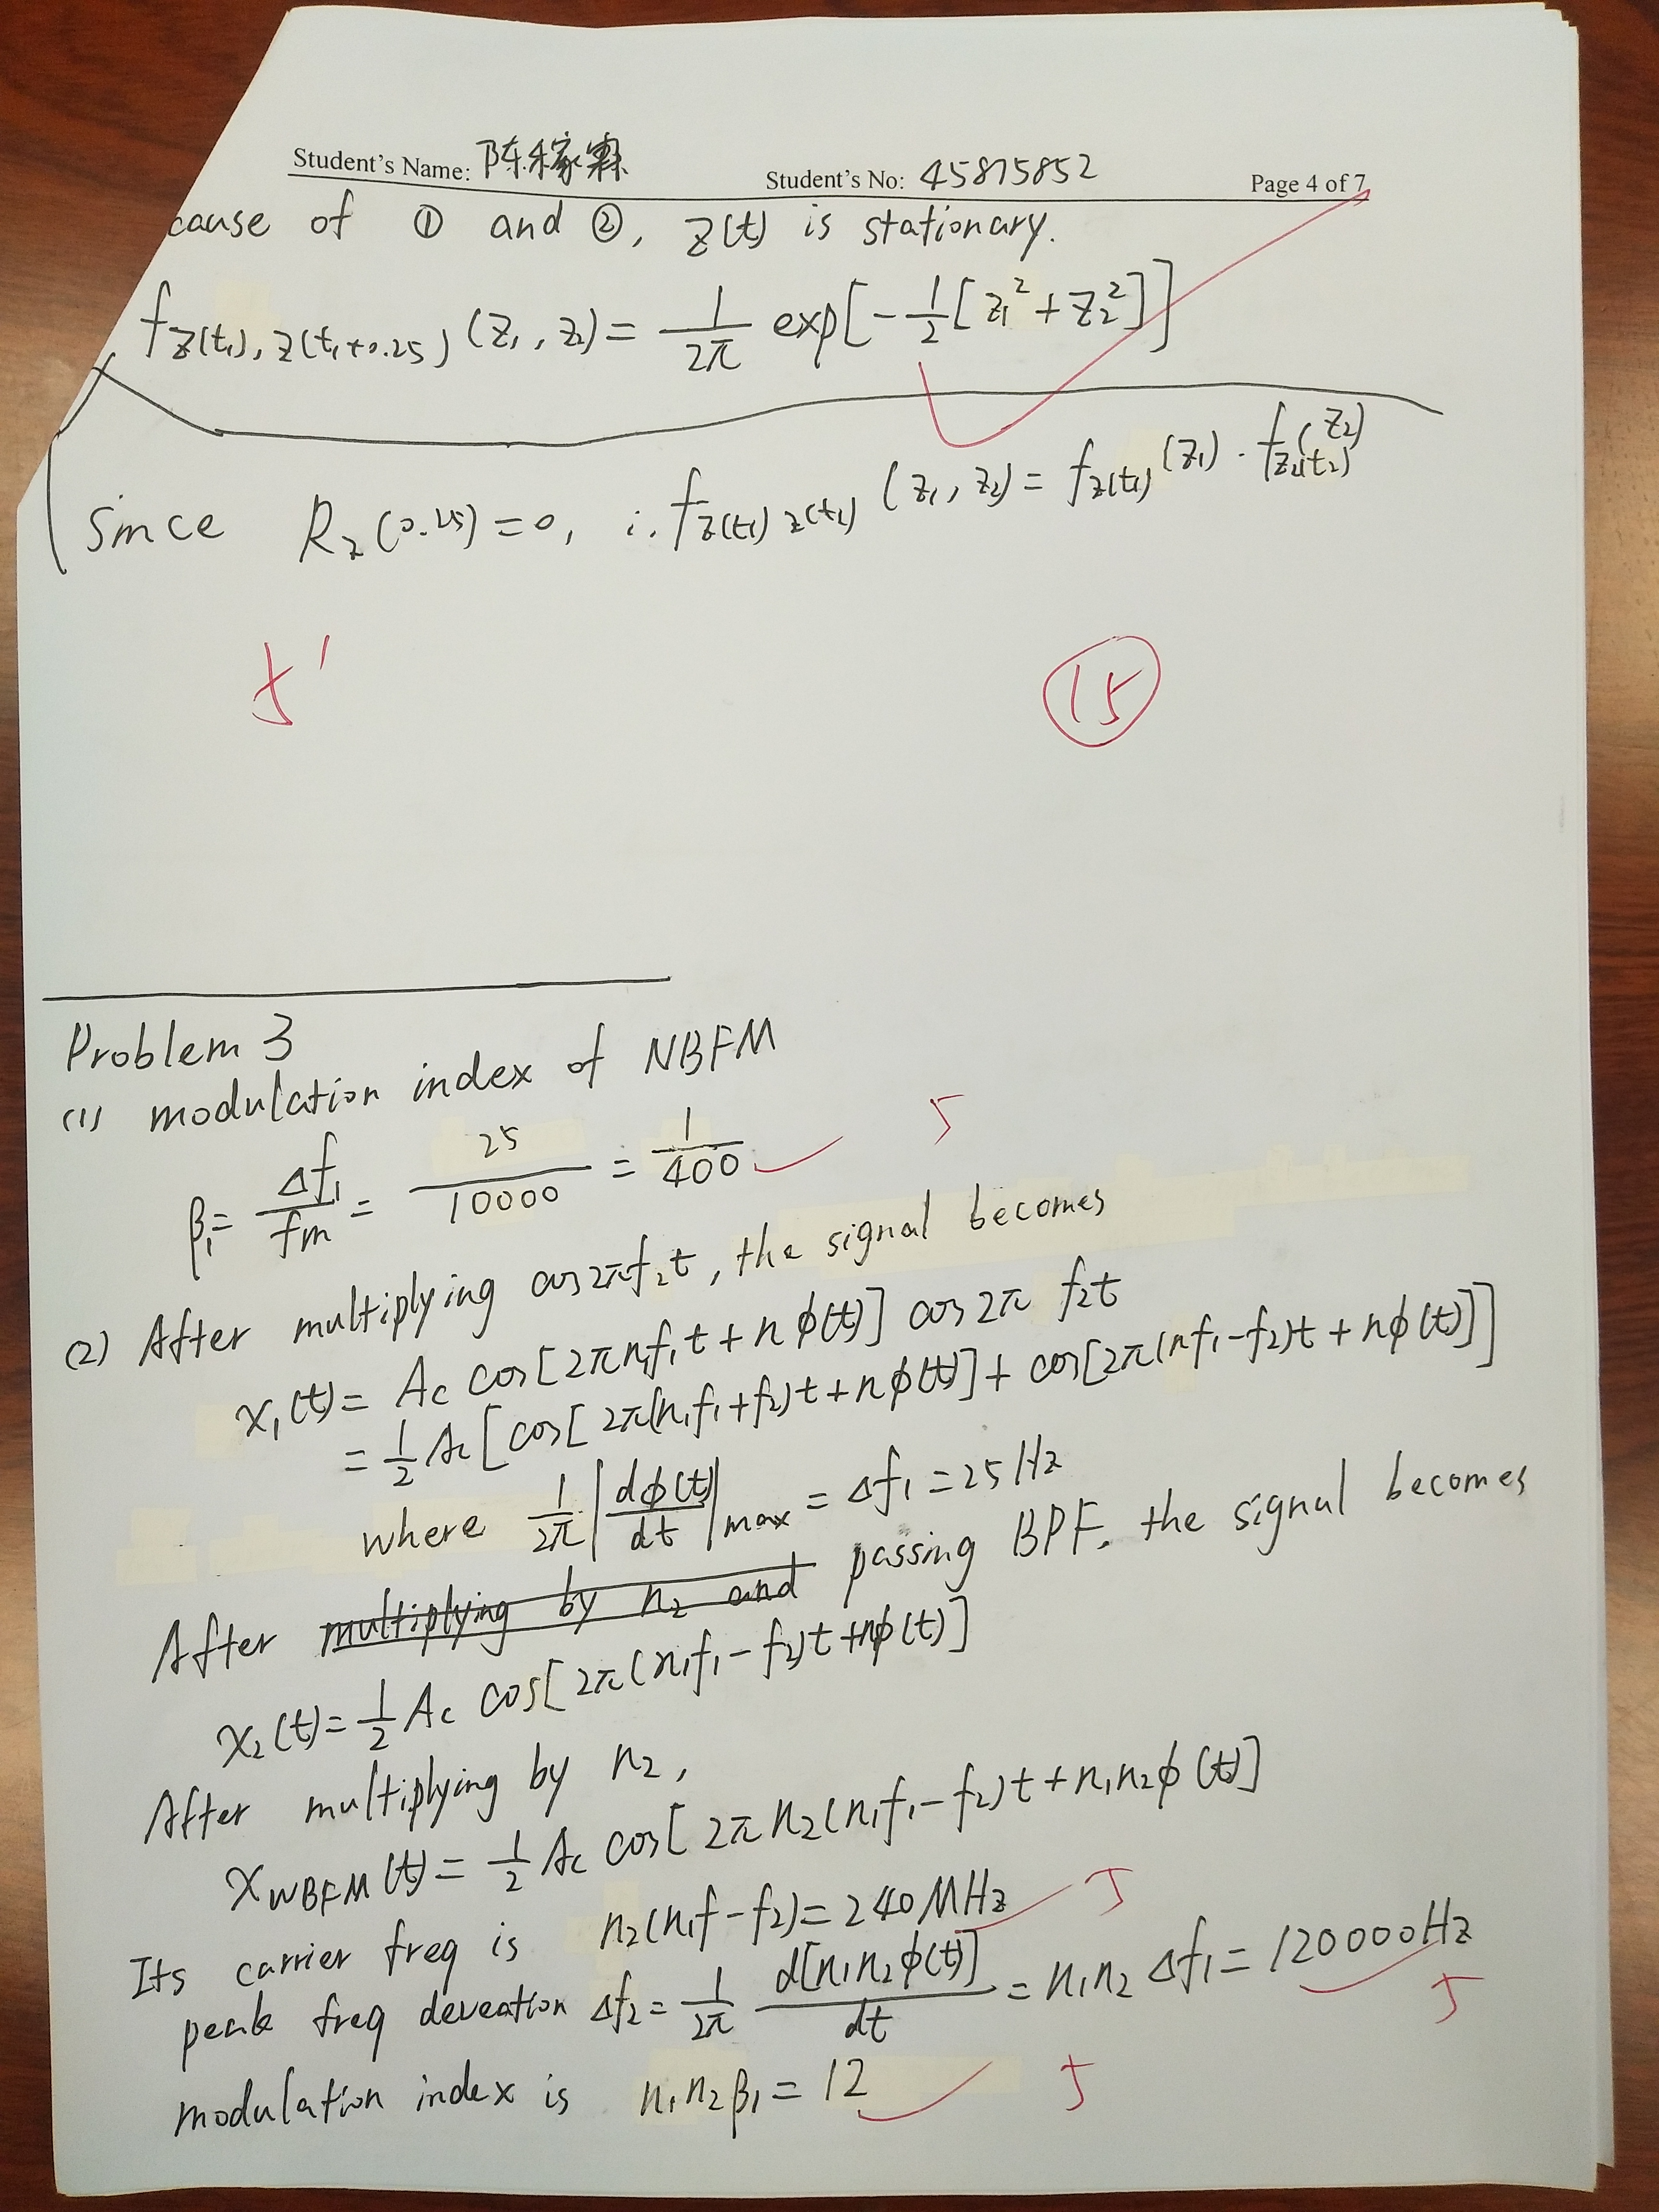 Student's Name: 陈稼霖 Student's No: 45875852 Page 4 of 7
cause of ① and ②, Z(t) is stationary.
f_{Z(t₁), Z(t₁+0.25)} (Z₁, Z₂) = 1/2π exp[-1/2[Z₁² + Z₂²]]
Since R_Z(0.25) = 0, ∴ f_{Z(t₁) Z(t₂)} (Z₁, Z₂) = f_{Z(t₁)}(Z₁) · f_{Z(t₂)}(Z₂)
5' 15
Problem 3
(1) modulation index of NBFM
β₁ = Δf₁/fm = 25/10000 = 1/400 5
(2) After multiplying cos2πf₂t, the signal becomes
x₁(t) = Ac cos[2πn₁f₁t + nϕ(t)] cos2π f₂t
= 1/2 Ac[cos[2π(n₁f₁+f₂)t + nϕ(t)] + cos[2π(nf₁-f₂)t + nϕ(t)]]
where 1/2π |dϕ(t)/dt|max = Δf₁ = 25Hz
After multiplying by n₂ and passing BPF, the signal becomes
x₂(t) = 1/2 Ac cos[2π(n₁f₁-f₂)t + nϕ(t)]
After multiplying by n₂,
x_{WBFM}(t) = 1/2 Ac cos[2πn₂(n₁f₁-f₂)t + n₁n₂ϕ(t)]
Its carrier freq is n₂(n₁f-f₂) = 240MHz 5
peak freq deveation Δf₂ = 1/2π d[n₁n₂ϕ(t)]/dt = n₁n₂Δf₁ = 120000Hz 5
modulation index is n₁n₂β₁ = 12 5